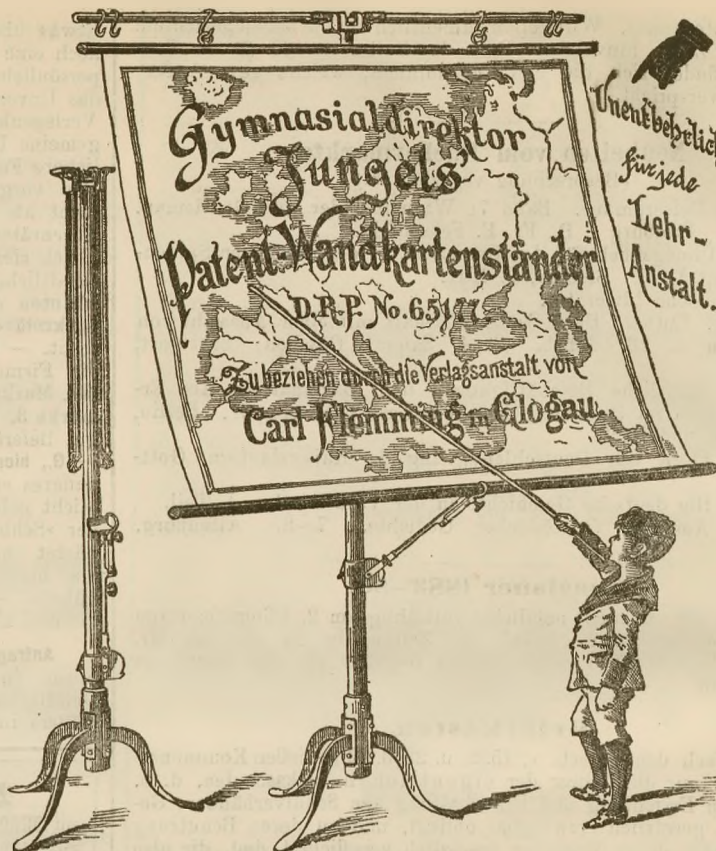 Gymnasialdirektor
Jungels'
Patent-Wandkartenständer
D.R.P. No. 65177
Zu beziehen durch die Verlagsanstalt von
Carl Flemming in Glogau.
Unentbehrlich
für jede
Lehr-
Anstalt.